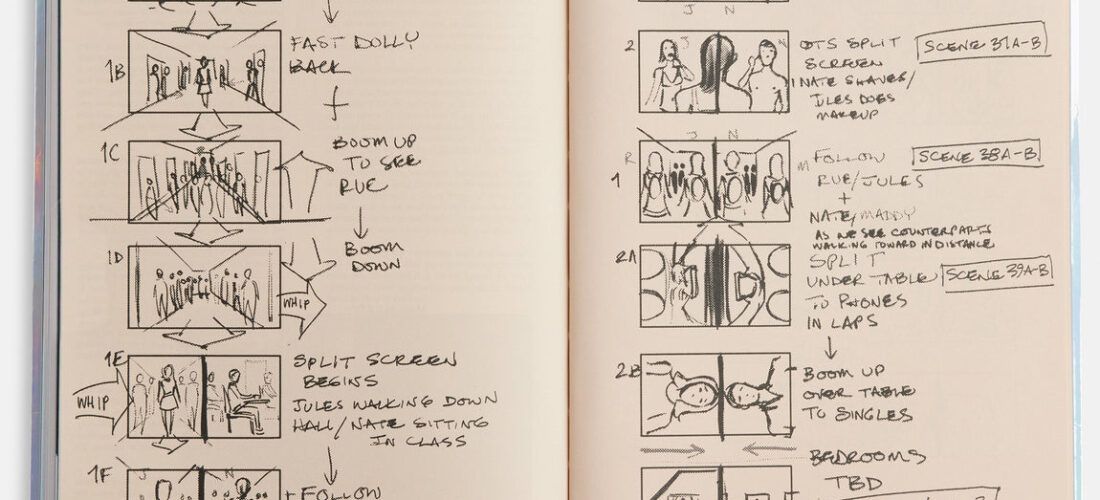 1B
FAST DOLLY
BACK
+
1C
BOOM UP
TO SEE
RUE
1D
BOOM
DOWN
WHIP
1E
WHIP
SPLIT SCREEN
BEGINS
JULES WALKING DOWN
HALL/NATE SITTING
IN CLASS
1F
J
N
+ FOLLOW
J N
2
J N
OTS SPLIT
SCREEN
NATE SHAVES/
JULES DOES
MAKEUP
SCENE 37A-B
J N
R
M
1
FOLLOW
RUE/JULES
+
NATE/MADDY
AS WE SEE COUNTERPARTS
WALKING TOWARD IN DISTANCE
SCENE 38A-B
2A
SPLIT
UNDER TABLE
TO PHONES
IN LAPS
SCENE 39A-B
2B
BOOM UP
OVER TABLE
TO SINGLES
BEDROOMS
TBD